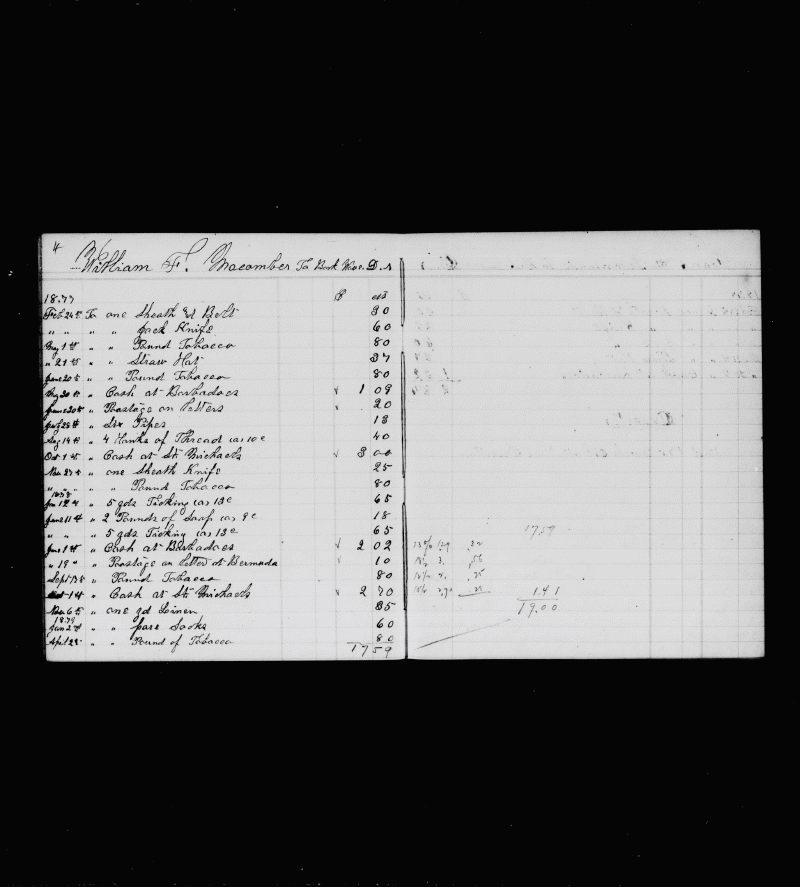 4
William F. Macomber To Bark Wave Dr
1877 $ cts
Feb 24th To one Sheath & Belt 30
" " " " Jack Knife 60
May 1st " " Pound Tobacco 80
" 21st " " Straw Hat 37
June 20th " " Pound Tobacco 80
May 30th " Cash at Barbadoes √ 1 09
June 20th " Postage on letters √ 20
" Six Pipes 18
Aug 14th " 4 Hanks of Thread as 10c 40
Oct 1st " Cash at St Michaels √ 3 00
Nov 27th " one Sheath Knife 25
" " " " " Pound Tobacco 80
1878
Jan 1st " 5 yds Ticking as 13c 65
11th " 2 Pounds of Soap as 9c 18
" " " 5 yds Ticking as 13c 65
1st " Cash at Barbadoes √ 2 02
" 19 " " Postage on letter at Bermuda √ 10
Sept " Pound Tobacco 80
Oct 1st " Cash at St Michaels √ 2 70
Nov 6th " one yd Linen 35
1879
Jan 2nd " " pare Socks 60
April 22 " " Pound of Tobacco 80
17 59
17.59
1.41
19.00